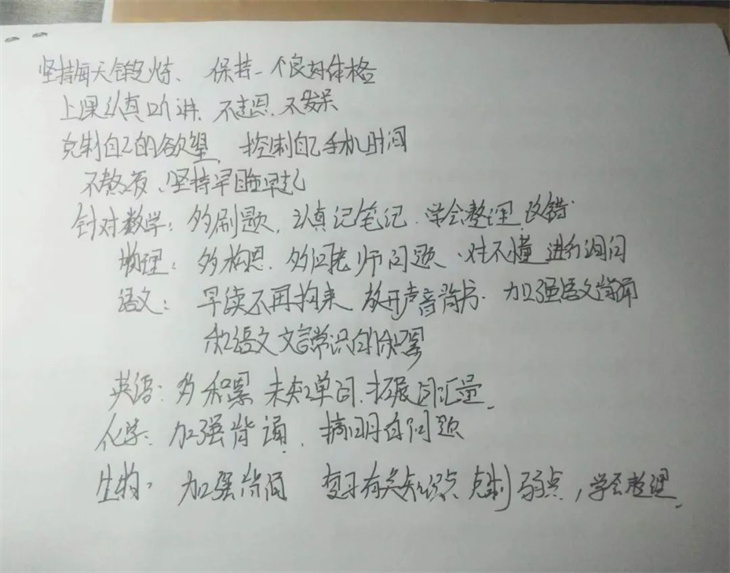 坚持每天锻炼、保持一个良好体格
上课认真听讲、不走思、不发呆
克制自己的欲望 控制自己手机时间
不熬夜、坚持早睡早起
针对数学：多刷题，认真记笔记、学会整理、改错
物理：多构思、多问老师问题、对不懂进行询问
语文：早读不再拘束 放开声音背书、加强语文背诵
和语文文言常识的积累
英语：多积累未知单词、拓展词汇量
化学：加强背诵、搞明白问题
生物：加强背诵 复习有关知识点 克制弱点，学会整理